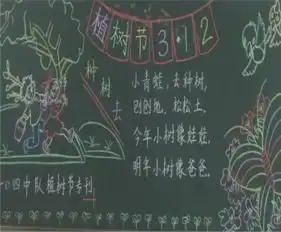 植树节3·12
种树去
小青蛙，去种树，
刨刨地，松松土，
今年小树像娃娃，
明年小树像爸爸。
一〇四中队植树节专刊